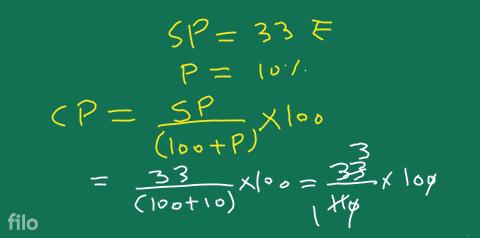 SP = 33 ₹
P = 10%
CP = SP/(100+P) × 100
= 33/(100+10) × 100 = 3 33/110 × 100
1
filo